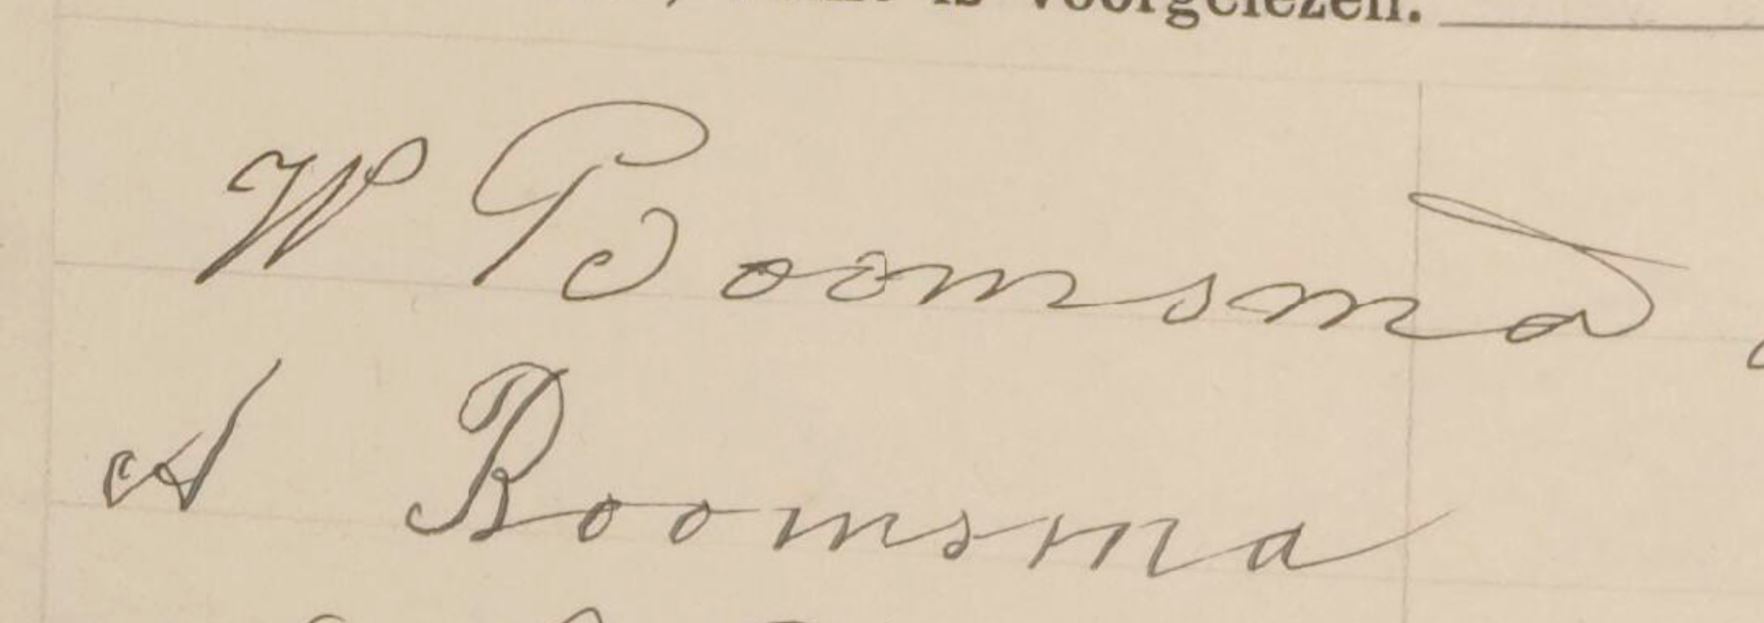 is voorgelezen.
W Boomsma
A Boomsma